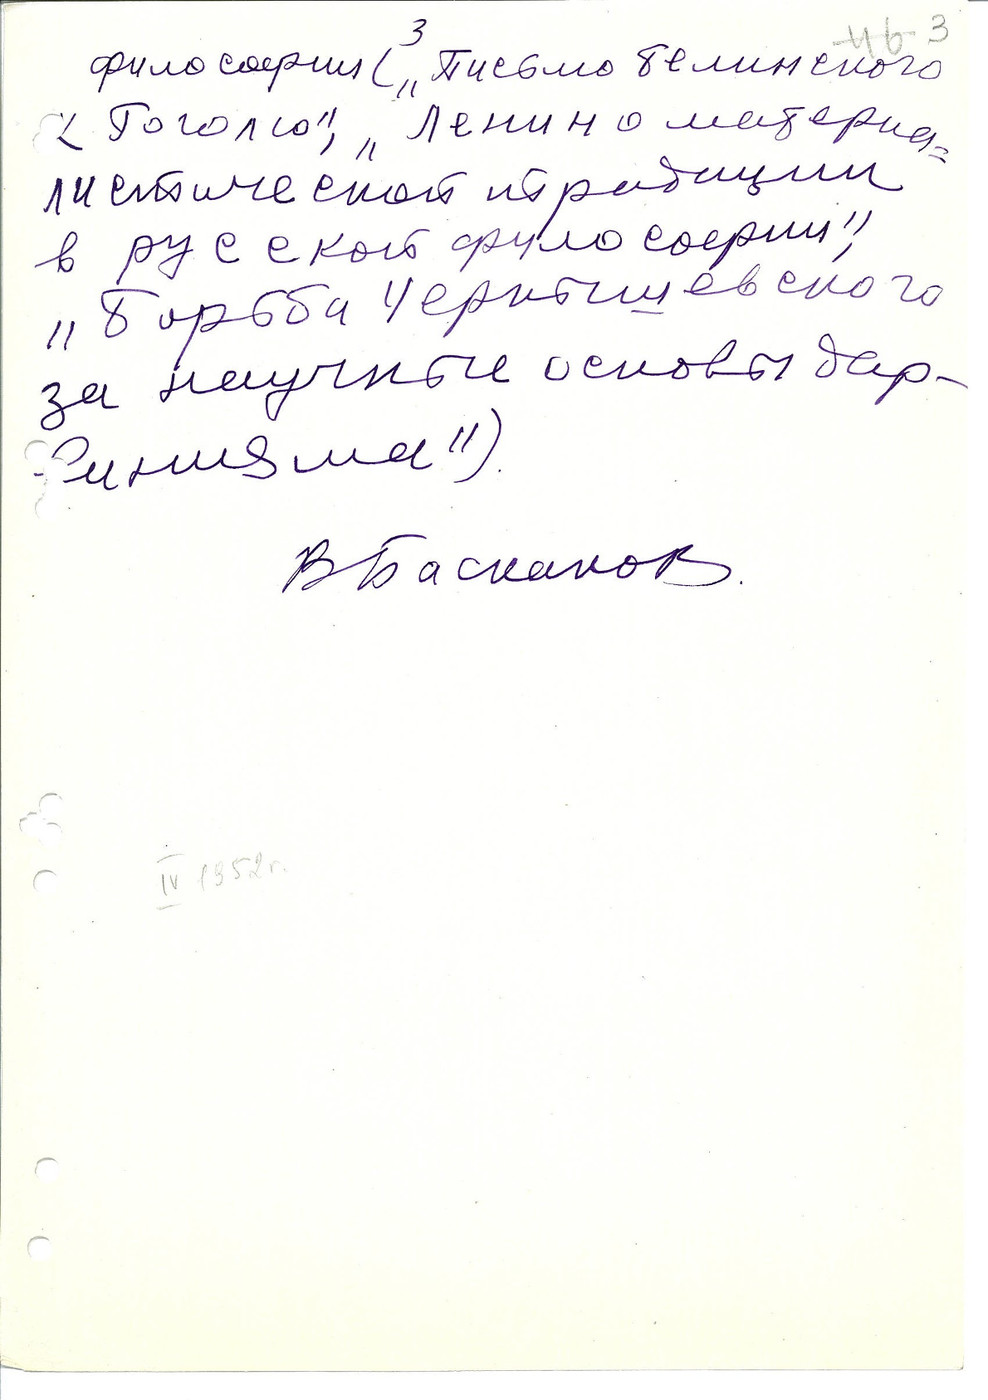 3
46 3
философии („Письмо Белинского
к Гоголю", „Ленин о материа=
листической традиции
в русской философии",
„Борьба Чернышевского
за научные основы дар-
винизма").
В Баскаков.
IV 1952 г.